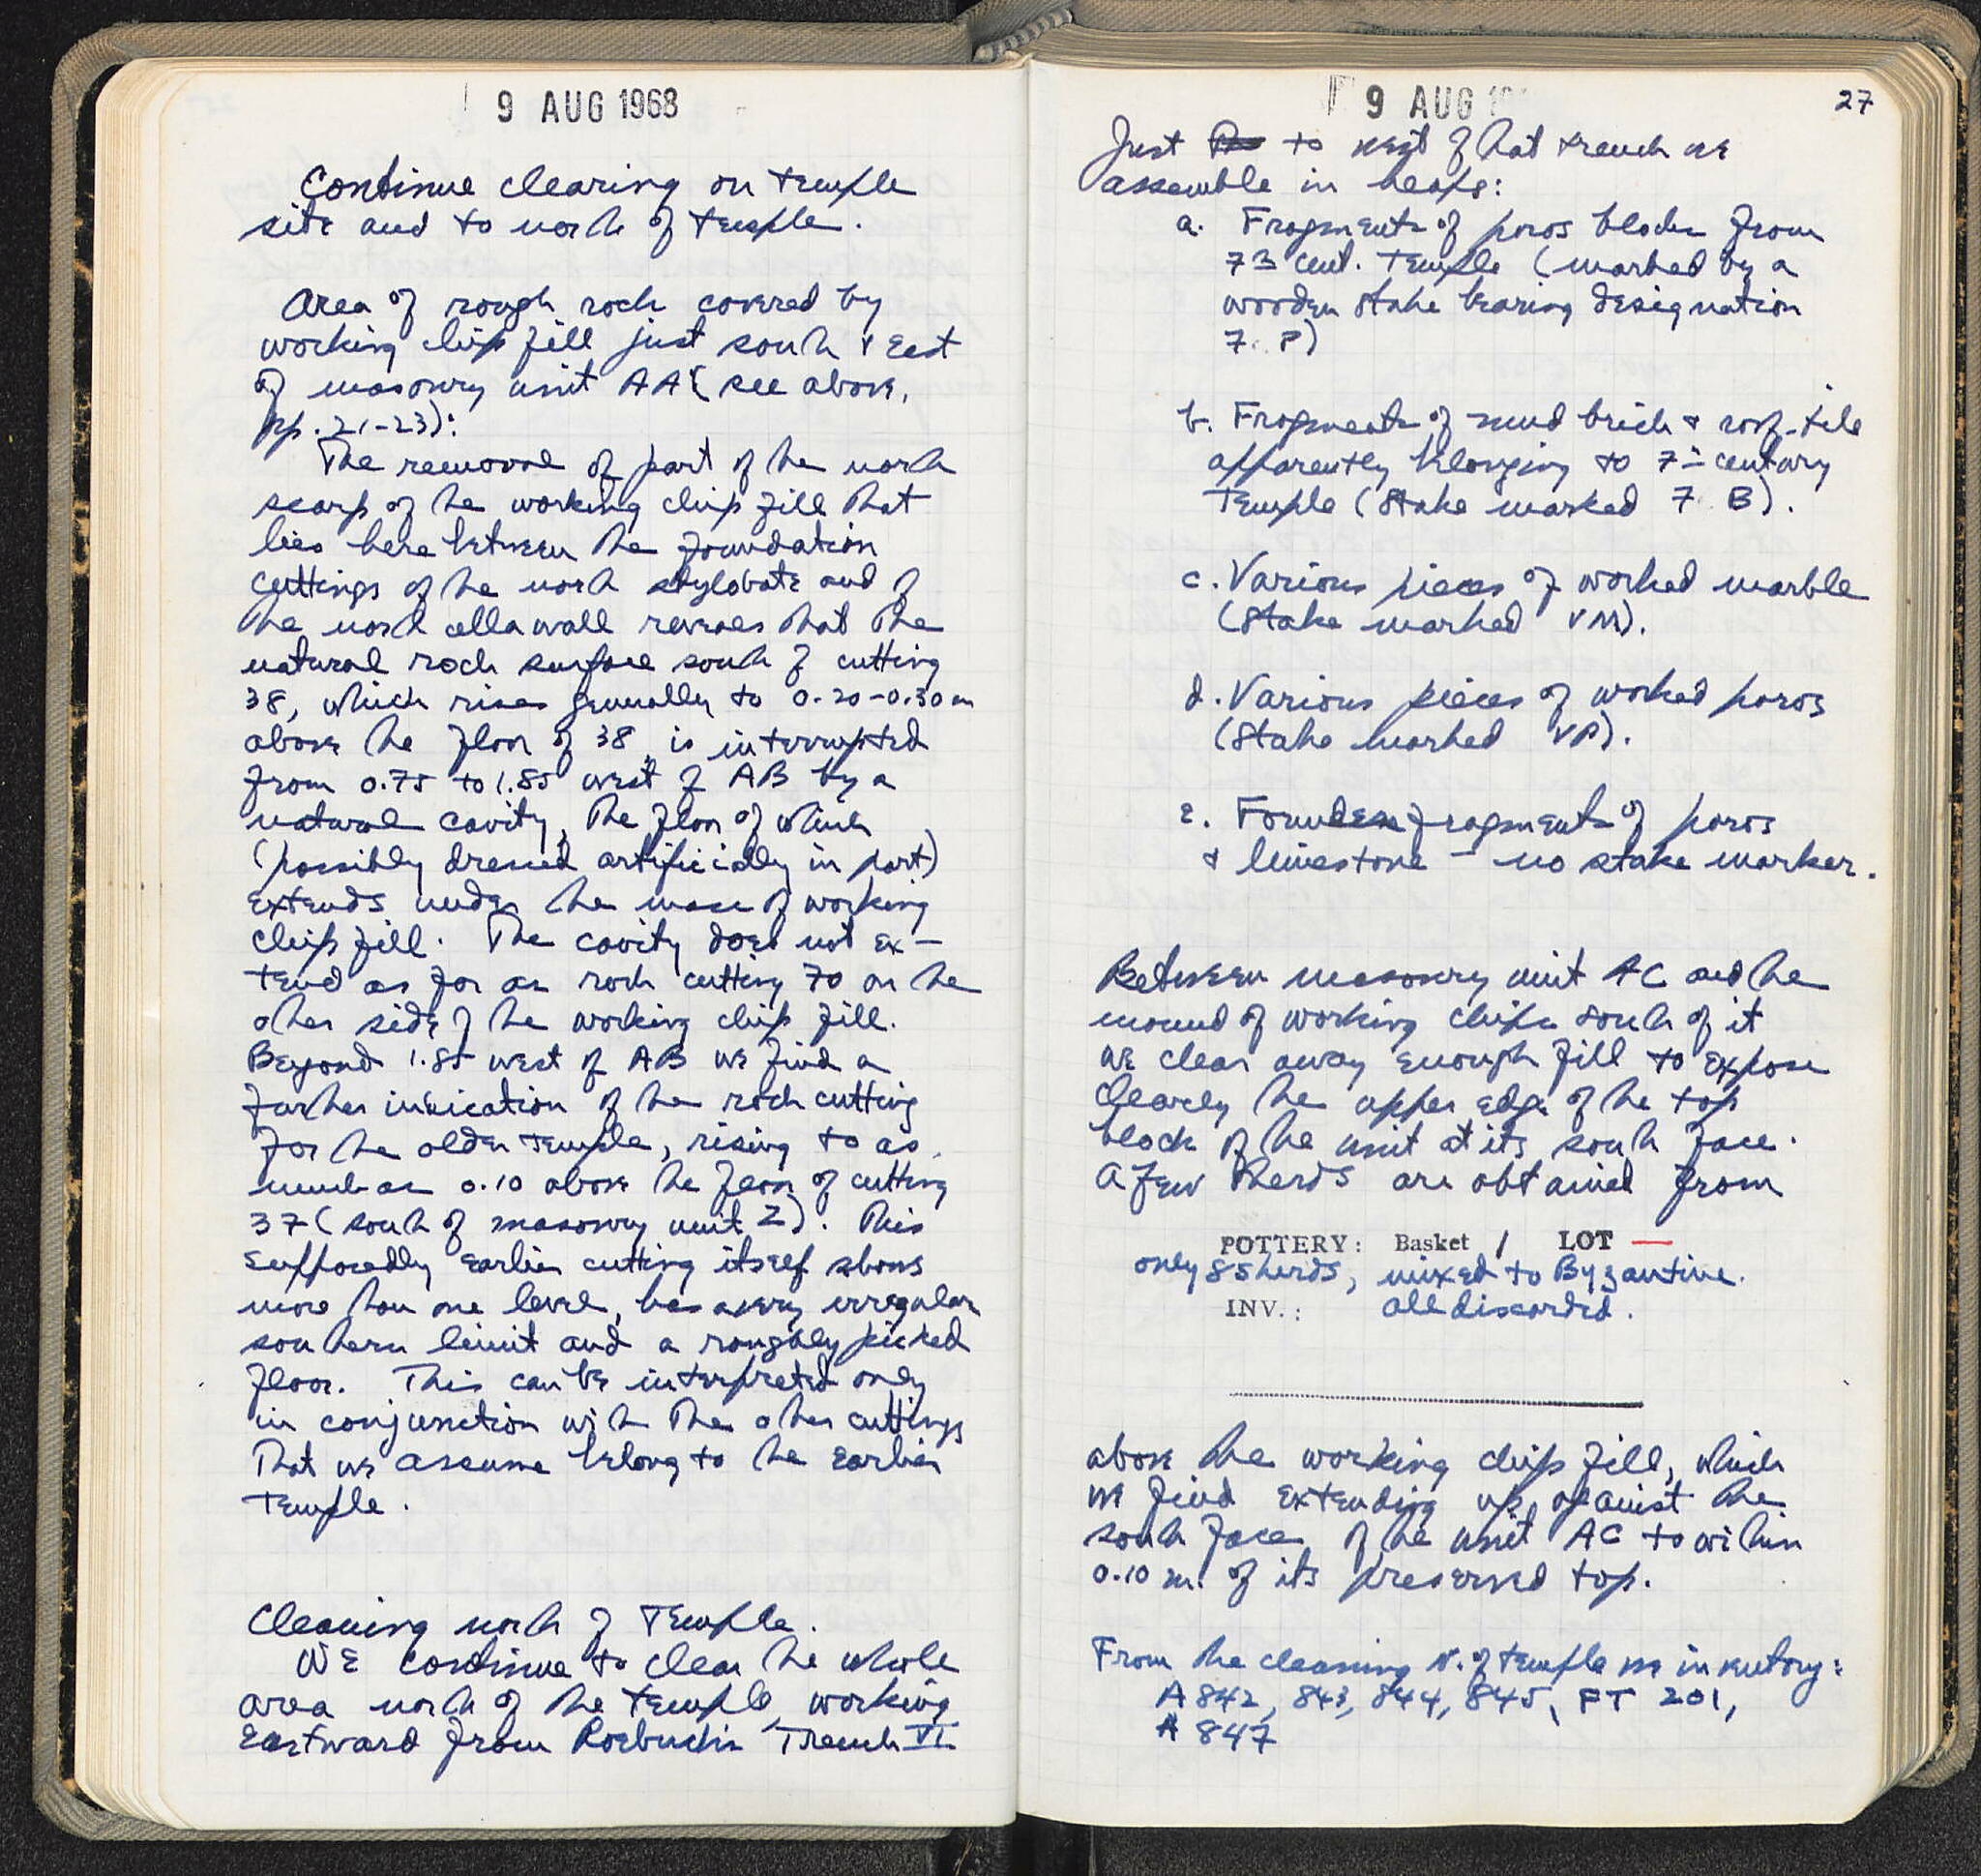 9 AUG 1968
Continue clearing on temple
site and to north of temple.
Area of rough rock covered by
working chip fill just south & East
of masonry unit AA (see above,
pp. 21-23):
The removal of part of the north
scarp of the working chip fill that
lies here between the foundation
cuttings of the north stylobate and of
the north cella wall reveals that the
natural rock surface south of cutting
38, which rises generally to 0.20-0.30 m
above the floor of 38, is interrupted
from 0.75 to 1.85 west of AB by a
natural cavity, the floor of which
(possibly dressed artificially in part)
extends under the mass of working
chip fill. The cavity does not ex-
tend as far as rock cutting 70 on the
other side of the working chip fill.
Beyond 1.85 west of AB we find a
further indication of the rock cutting
for the older temple, rising to as
much as 0.10 above the floor of cutting
37 (south of masonry unit Z). This
supposedly earlier cutting itself shows
more than one level, has a very irregular
southern limit and a roughly picked
floor. This can be interpreted only
in conjunction with the other cuttings
that we assume belong to the earlier
temple.
Cleaning north of Temple.
We continue to clear the whole
area north of the temple, working
Eastward from Roebuck's Trench VI
9 AUG
27
Just to west of that trench we
assemble in heaps:
a. Fragments of poros blocks from
7th cent. Temple (marked by a
wooden stake bearing designation
7. P)
b. Fragments of mud brick & roof-tile
apparently belonging to 7th century
Temple (Stake marked 7 B).
c. Various pieces of worked marble
(Stake marked VM).
d. Various pieces of worked poros
(Stake marked VP).
e. fragments of poros
& limestone - no stake marker.
Between masonry unit AC and the
mound of working chips south of it
we clear away enough fill to expose
clearly the upper edge of the top
block of the unit at its south face.
A few sherds are obtained from
POTTERY: Basket 1 LOT —
only 8 sherds, mixed to Byzantine.
INV.: All discarded.
above the working chip fill, which
we find extending up against the
south face of the unit AC to within
0.10 m. of its preserved top.
From the cleaning N. of temple we inventory:
A 842, 843, 844, 845, FT 201,
A 847